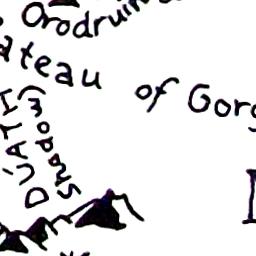 Orodruin
ateau of Gorg
DÚATH
Shadow)